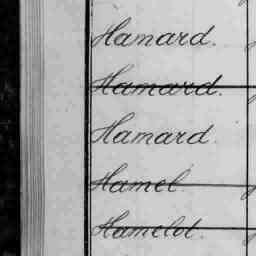 Hamard.
Hamard.
Hamard
Hamel
Hamelot.